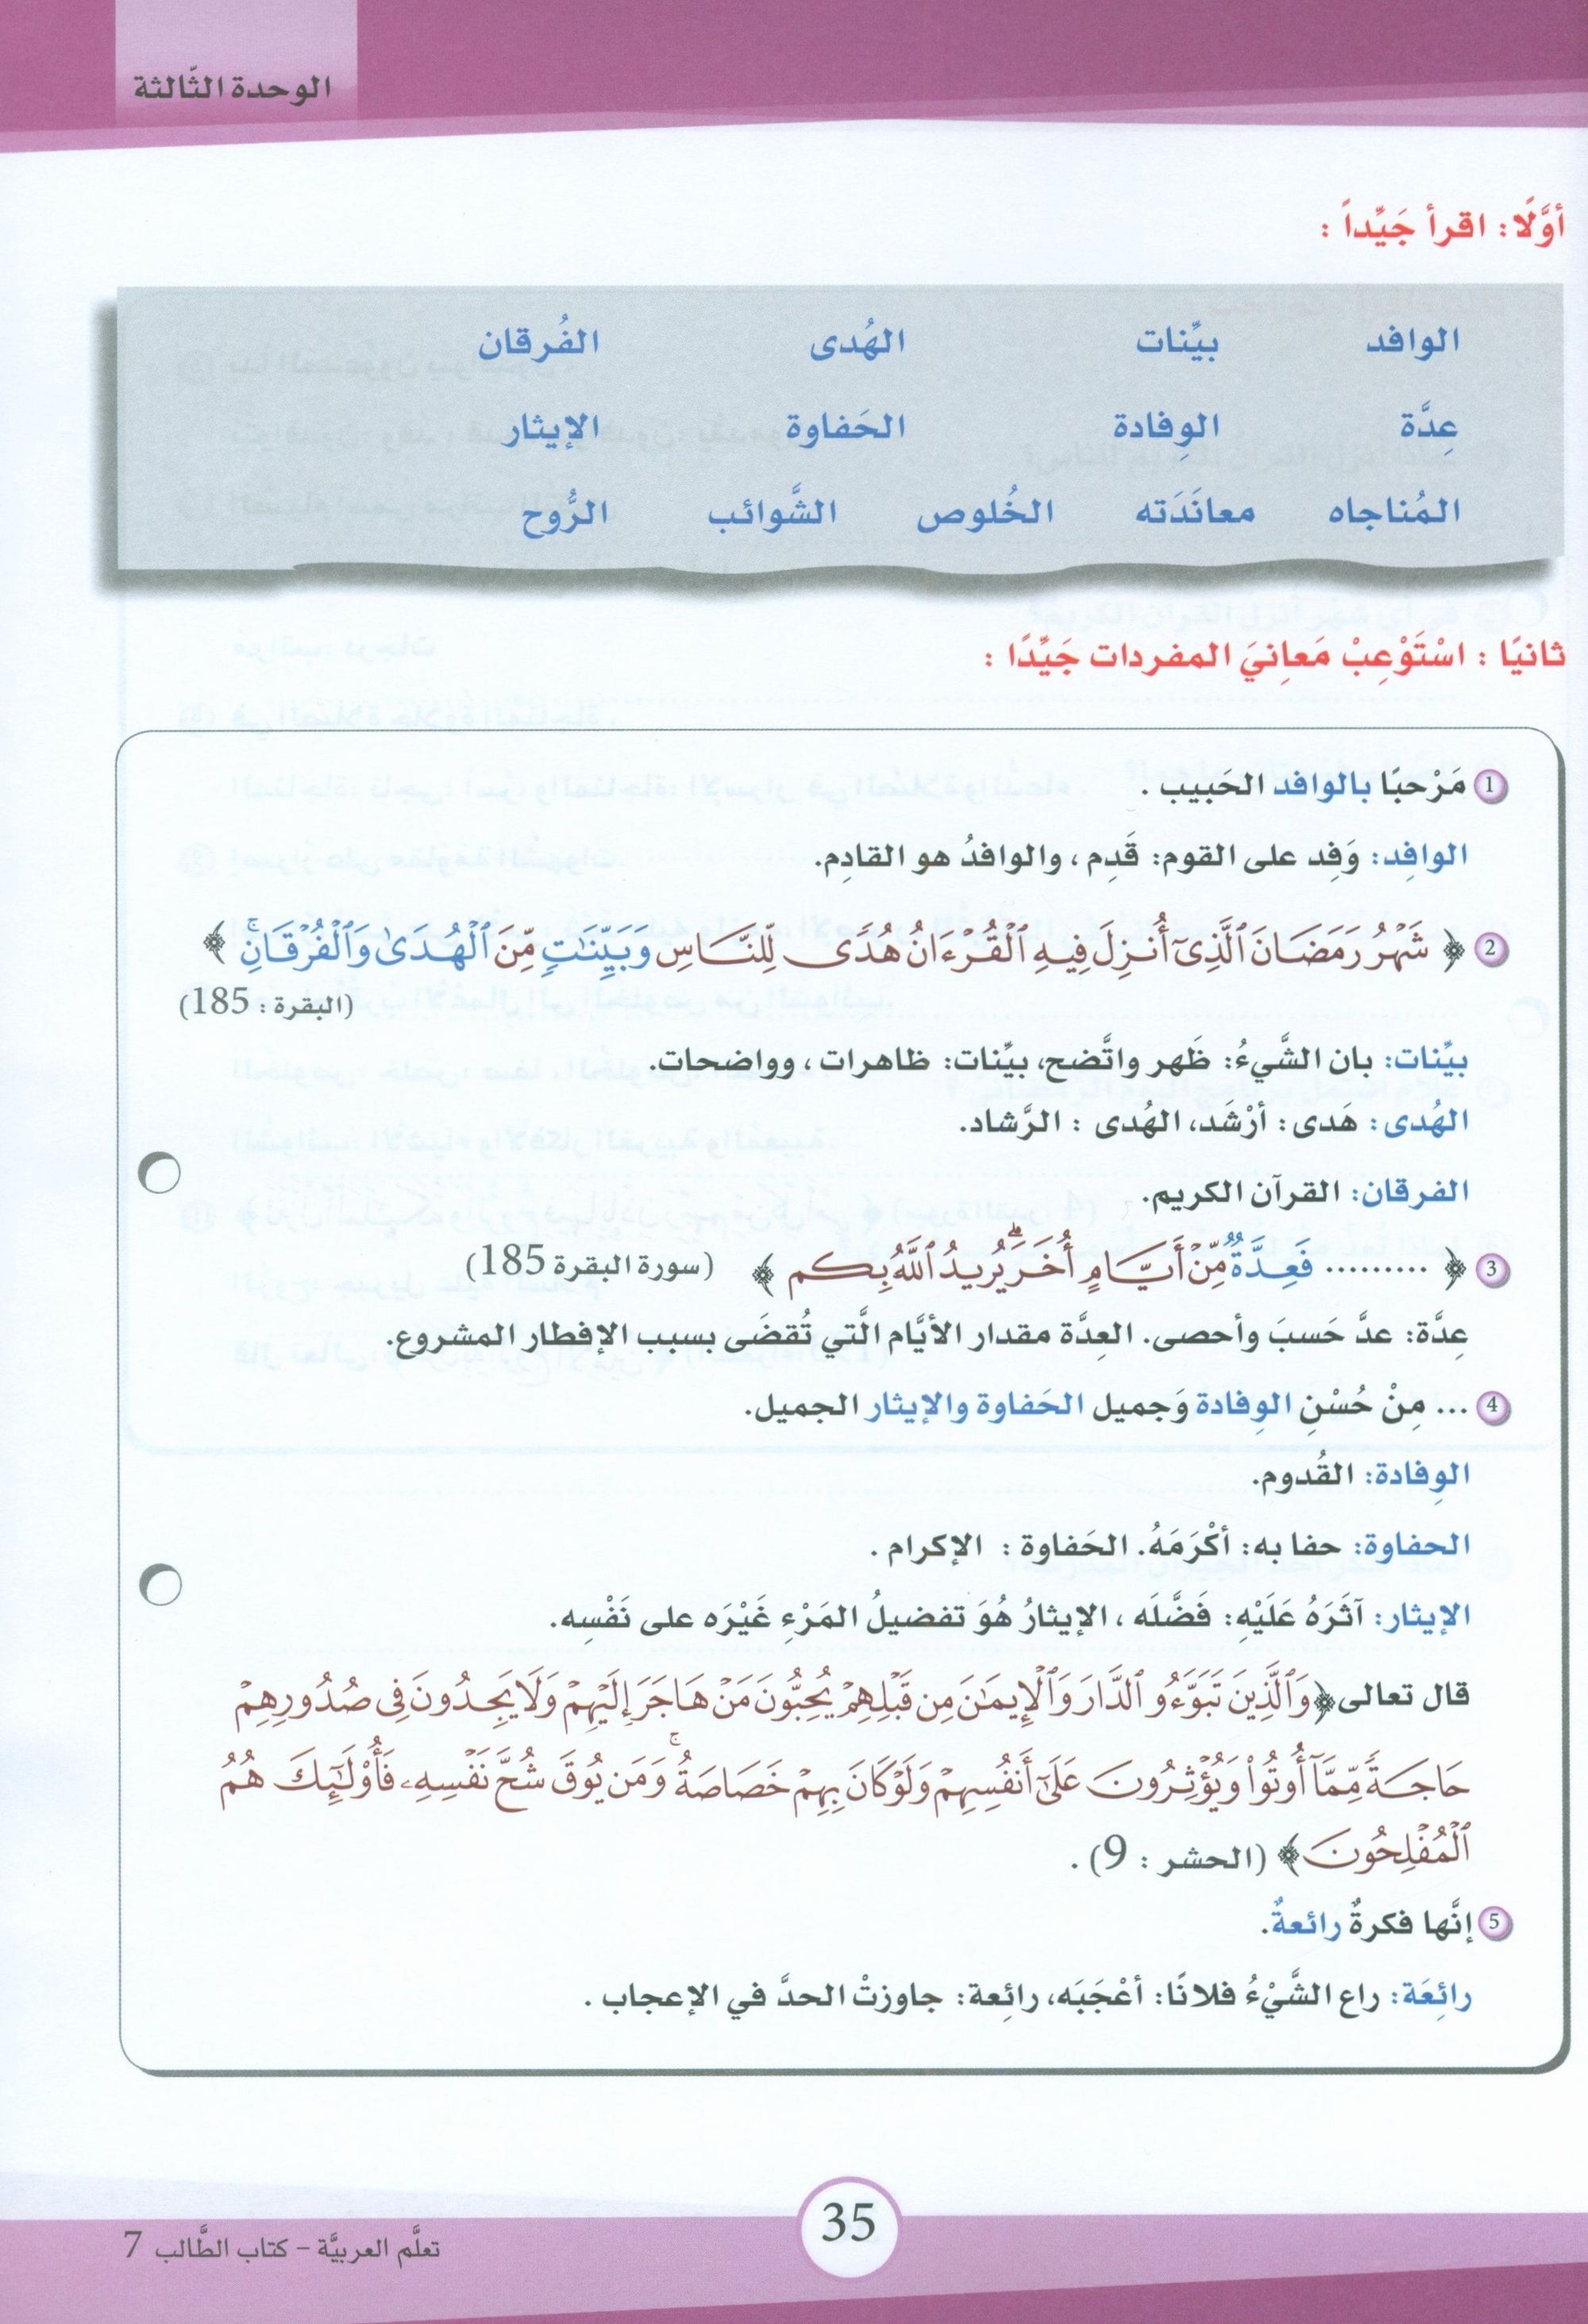 الوحدة الثّالثة
أوَّلًا: اقرأ جَيِّداً :
الوافد بيِّنات الهُدى الفُرقان
عِدَّة الوِفادة الحَفاوة الإيثار
المُناجاه معانَدَته الخُلوص الشَّوائب الرُّوح
ثانيًا : اسْتَوْعِبْ مَعانِيَ المفردات جَيِّدًا :
1 مَرْحبًا بالوافد الحَبيب .
الوافِد: وَفِد على القوم: قَدِم ، والوافدُ هو القادِم.
2 ﴿ شَهْرُ رَمَضَانَ ٱلَّذِىٓ أُنزِلَ فِيهِ ٱلْقُرْءَانُ هُدًى لِّلنَّاسِ وَبَيِّنَٰتٍ مِّنَ ٱلْهُدَىٰ وَٱلْفُرْقَانِۚ ﴾
(البقرة : 185)
بيِّنات: بان الشَّيءُ: ظَهر واتَّضح، بيِّنات: ظاهرات ، وواضحات.
الهُدى: هَدى: أرْشَد، الهُدى : الرَّشاد.
الفرقان: القرآن الكريم.
3 ﴿ ......... فَعِدَّةٌ مِّنْ أَيَّامٍ أُخَرَۗ يُرِيدُ ٱللَّهُ بِكُم ﴾ (سورة البقرة 185)
عِدَّة: عدَّ حَسبَ وأحصى. العِدَّة مقدار الأيَّام الَّتي تُقضَى بسبب الإفطار المشروع.
4 ... مِنْ حُسْنِ الوِفادة وَجميل الحَفاوة والإيثار الجميل.
الوِفادة: القُدوم.
الحفاوة: حفا به: أكْرَمَهُ. الحَفاوة : الإكرام .
الإيثار: آثَرَهُ عَلَيْهِ: فَضَّلَه ، الإيثارُ هُوَ تفضيلُ المَرْءِ غَيْرَه على نَفْسِه.
قال تعالى ﴿وَٱلَّذِينَ تَبَوَّءُو ٱلدَّارَ وَٱلْإِيمَٰنَ مِن قَبْلِهِمْ يُحِبُّونَ مَنْ هَاجَرَ إِلَيْهِمْ وَلَا يَجِدُونَ فِى صُدُورِهِمْ
حَاجَةً مِّمَّآ أُوتُوا۟ وَيُؤْثِرُونَ عَلَىٰٓ أَنفُسِهِمْ وَلَوْ كَانَ بِهِمْ خَصَاصَةٌۚ وَمَن يُوقَ شُحَّ نَفْسِهِۦ فَأُو۟لَٰٓئِكَ هُمُ
ٱلْمُفْلِحُونَ ﴾ (الحشر : 9) .
5 إنَّها فكرةٌ رائعةٌ.
رائِعَة: راع الشَّيْءُ فلانًا: أعْجَبَه، رائعة: جاوزتْ الحدَّ في الإعجاب .
35
تعلَّم العربيَّة – كتاب الطَّالب 7